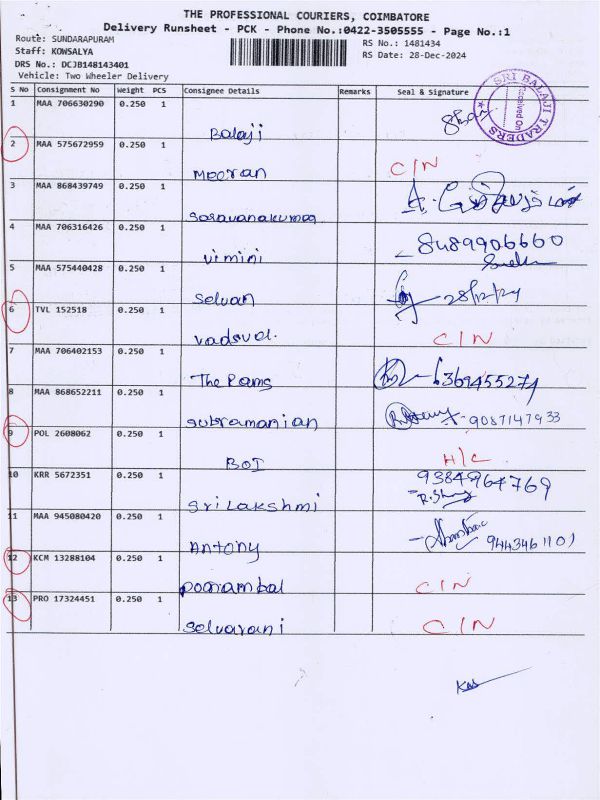 THE PROFESSIONAL COURIERS, COIMBATORE
Delivery Runsheet - PCK - Phone No.:0422-3505555 - Page No.:1
Route: SUNDARAPURAM
RS No.: 1481434
Staff: KOWSALYA
RS Date: 28-Dec-2024
DRS No.: DCJB148143401
Vehicle: Two Wheeler Delivery
SRI BALAJI TRADERS
Received On
S No Consignment No Weight PCS Consignee Details Remarks Seal & Signature
1 MAA 706630290 0.250 1 Balaji
2 MAA 575672959 0.250 1 Meeran C/N
3 MAA 868439749 0.250 1 Saravanakumar
4 MAA 706316426 0.250 1 vimini 8489906660
5 MAA 575440428 0.250 1 Selvan 28/12/24
6 TVL 152518 0.250 1 C/N
7 MAA 706402153 0.250 1 The Rams 6369455274
8 MAA 868652211 0.250 1 Subramanian 9087147933
9 POL 2608062 0.250 1 BOI H/C
10 KRR 5672351 0.250 1 Sri Lakshmi 9384964769
11 MAA 945080420 0.250 1 Antony 9443461101
12 KCM 13288104 0.250 1 poonambal C/N
13 PRO 17324451 0.250 1 Selvarani C/N